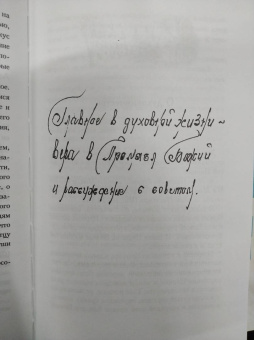 Главное в духовной жизни –
вера в Промысл Божий
и рассуждение с советом.